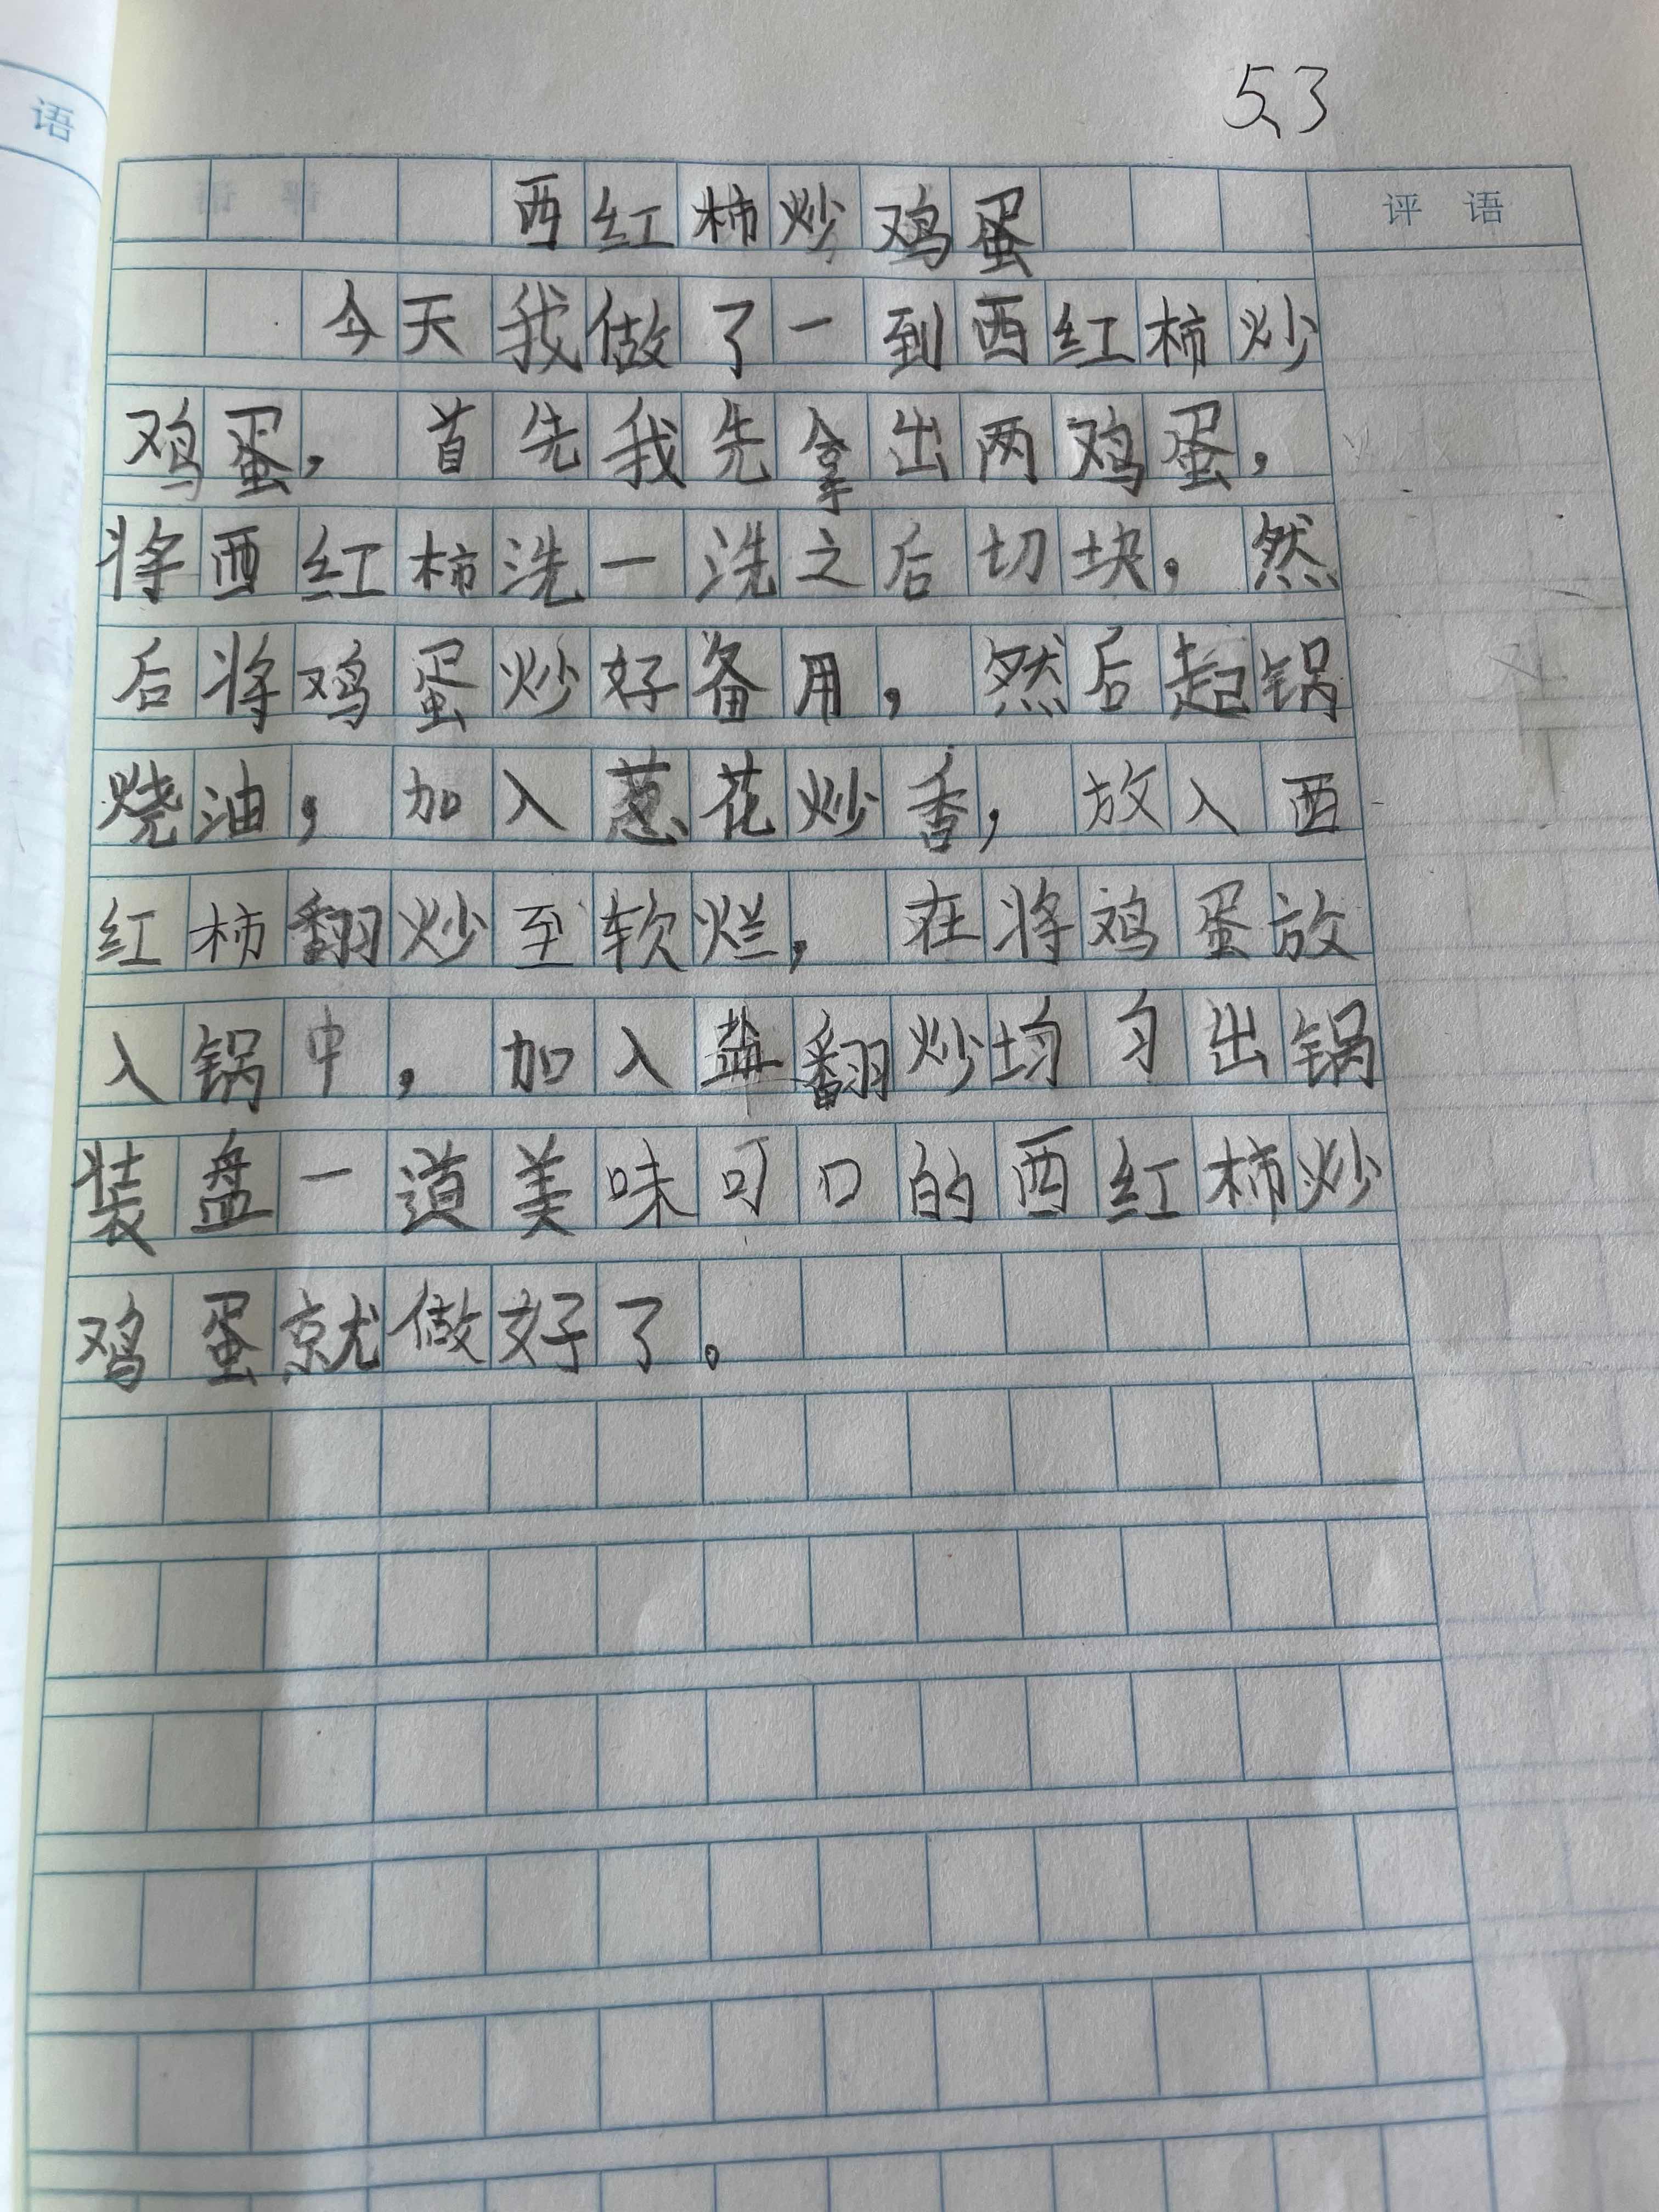 语
5、3
西红柿炒鸡蛋
评 语
今天我做了一到西红柿炒
鸡蛋，首先我先拿出两鸡蛋，
将西红柿洗一洗之后切块，然
后将鸡蛋炒好备用，然后起锅
烧油，加入葱花炒香，放入西
红柿翻炒至软烂，在将鸡蛋放
入锅中，加入盐翻炒均匀出锅
装盘一道美味可口的西红柿炒
鸡蛋就做好了。